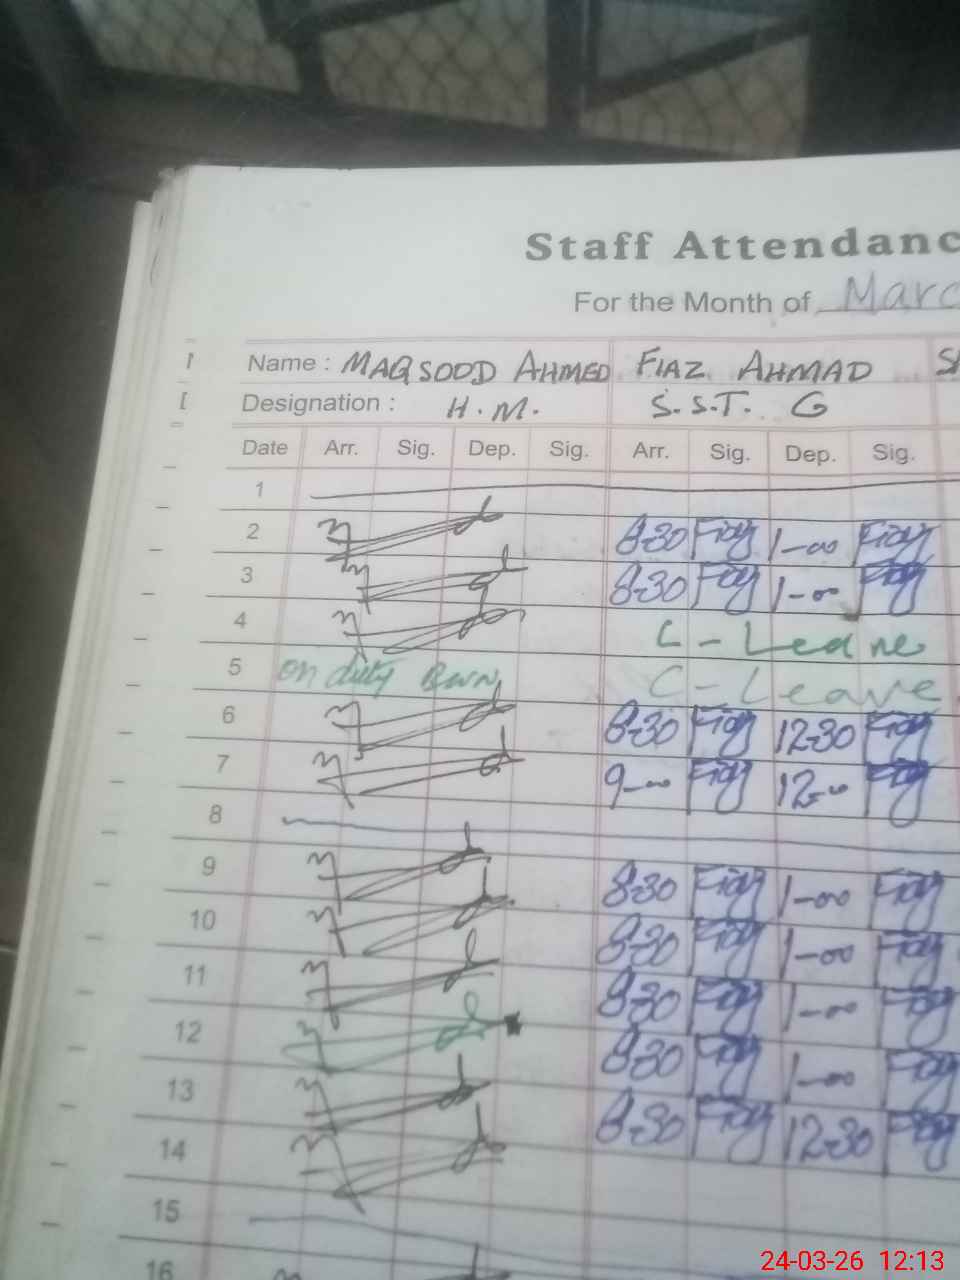 Staff Attendanc
For the Month of Marc
Name : MAQSOOD AHMED FIAZ AHMAD
Designation : H.M. S.S.T. G
Date Arr. Sig. Dep. Sig. Arr. Sig. Dep. Sig.
1
2 8-30 Fiaz 1-00 Fiaz
3 8-30 Fiaz 1-00 Fiaz
4 C - Leave
5 on duty C - Leave
6 8-30 Fiaz 12-30 Fiaz
7 9-00 Fiaz 12-00 Fiaz
8
9 8-30 Fiaz 1-00 Fiaz
10 8-30 Fiaz 1-00 Fiaz
11 8-30 Fiaz 1-00 Fiaz
12 8-30 Fiaz 1-00 Fiaz
13 8-30 Fiaz 12-30 Fiaz
14
15
16
24-03-26 12:13